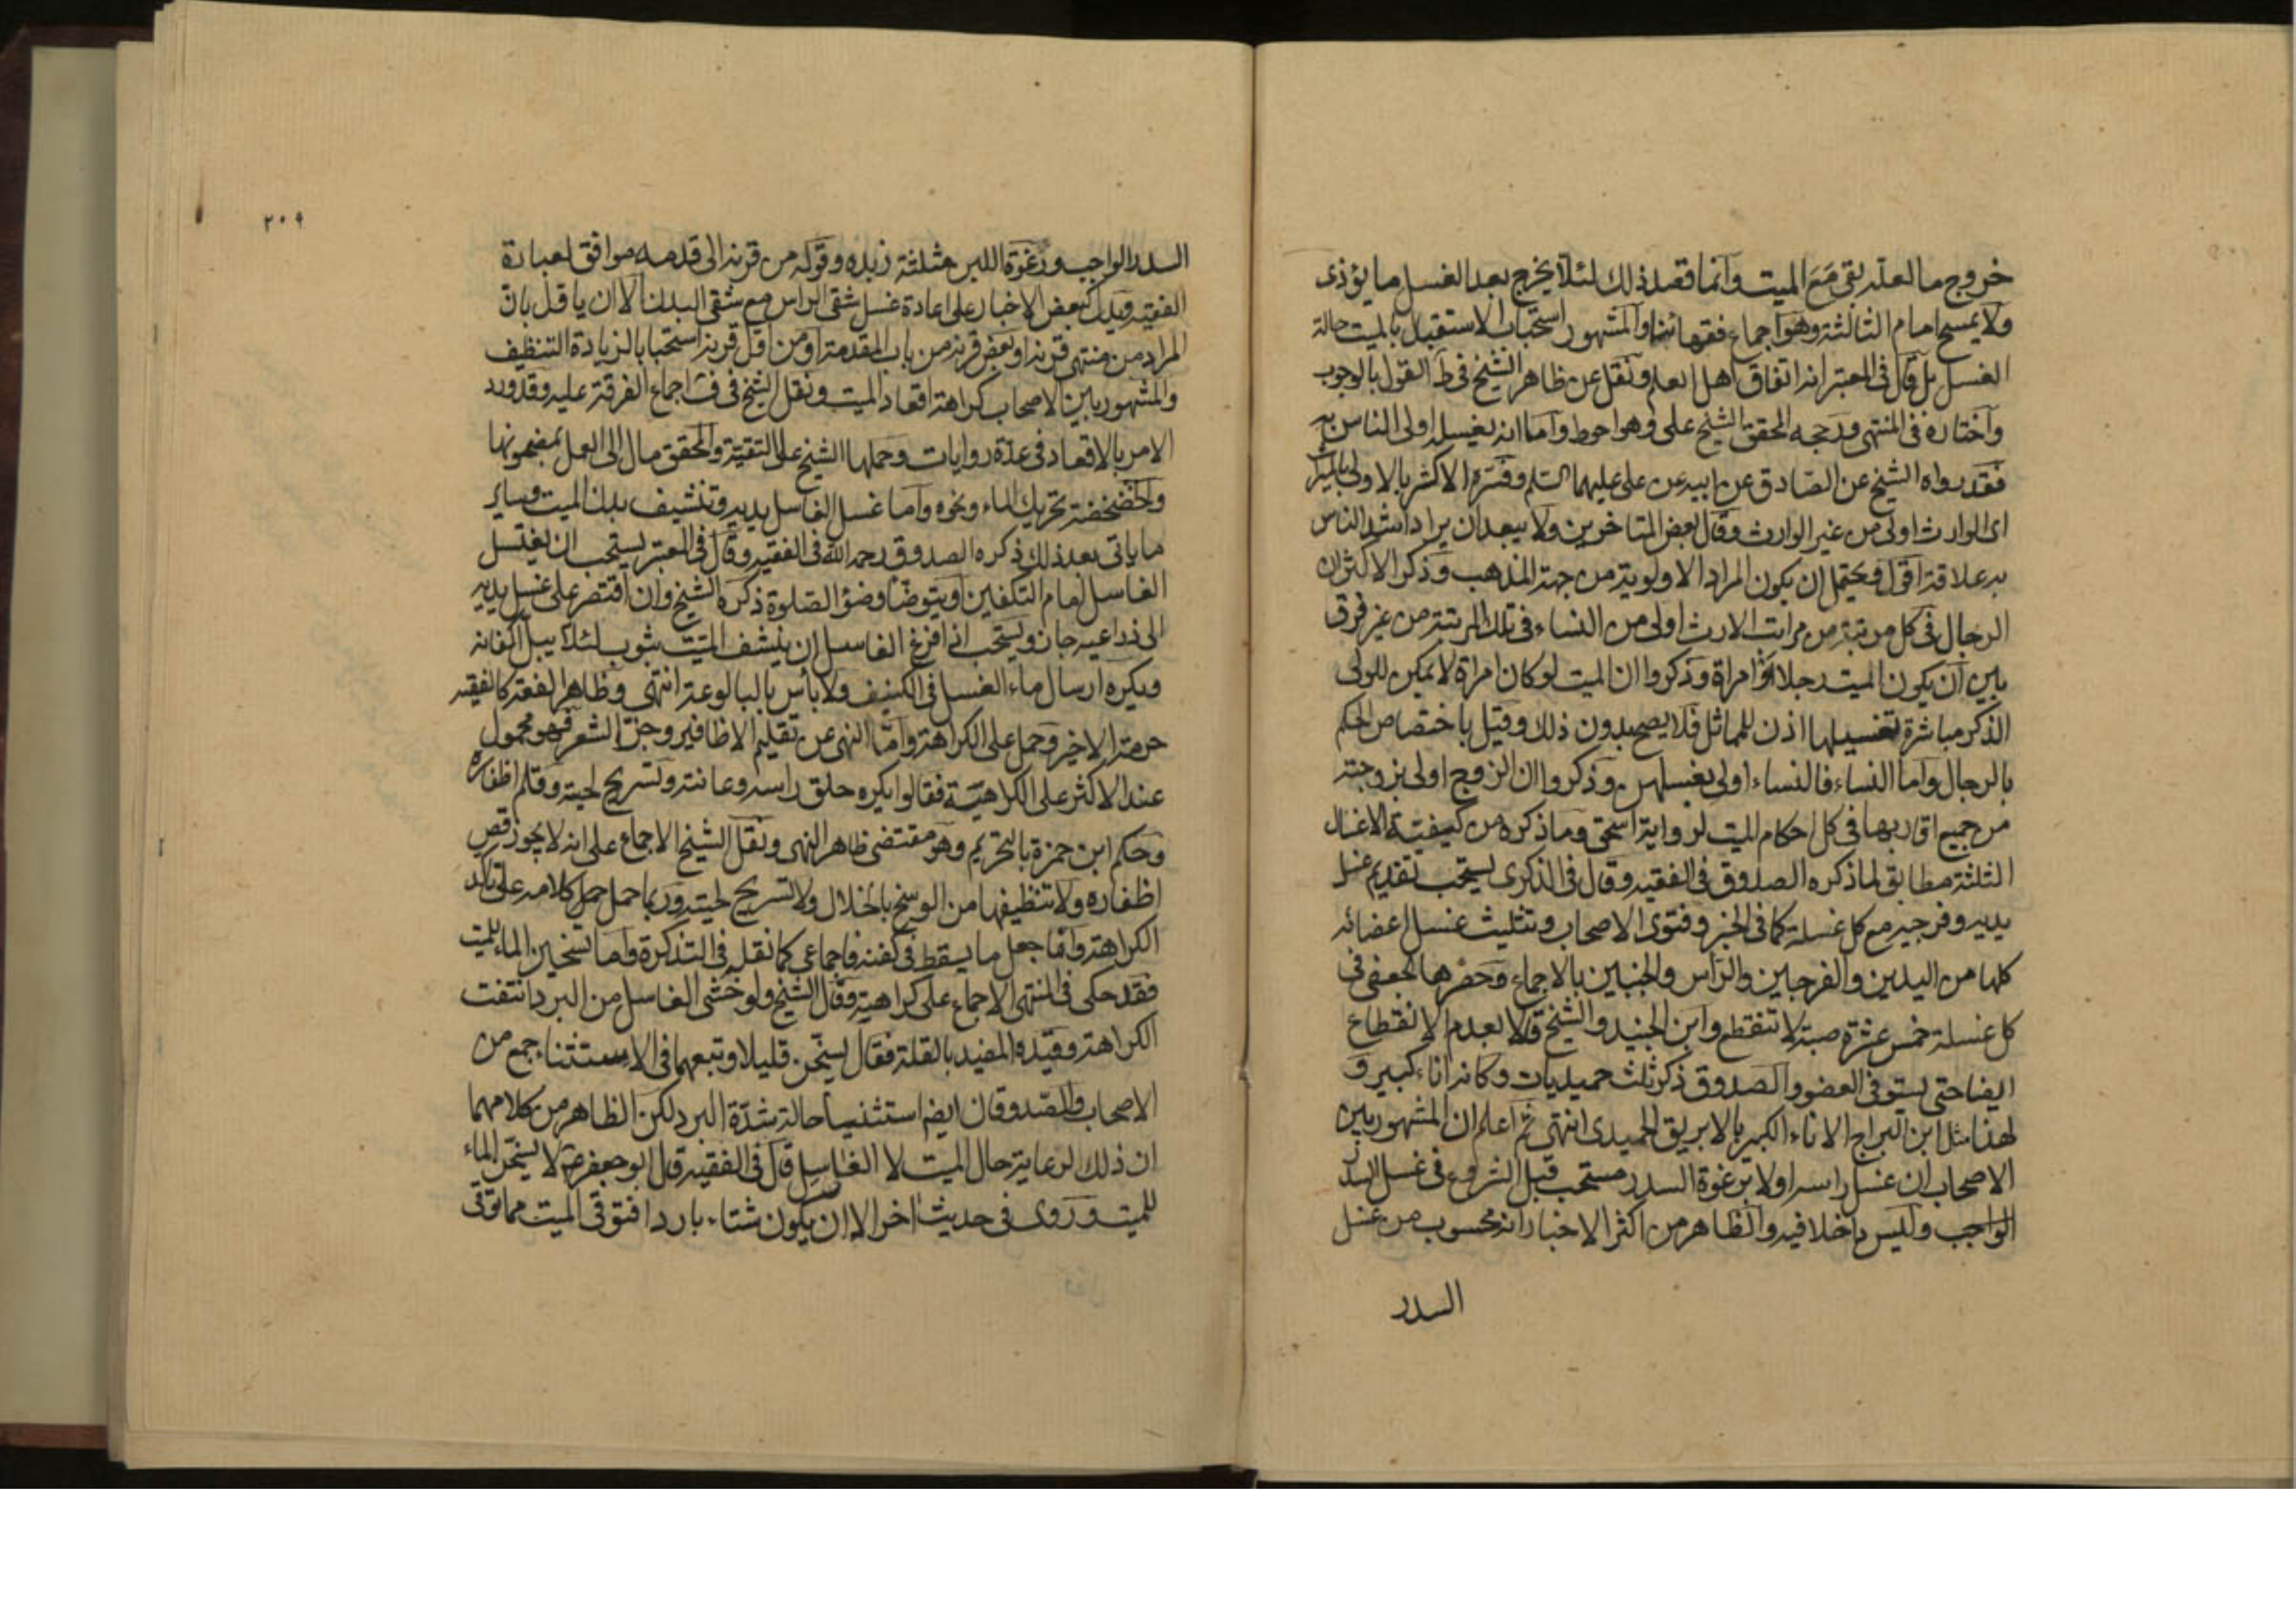 خروج ما لعله بقي مع الميت وانما قصد ذلك لئلا يخرج بعد الغسل ما يؤذى
ولا يمسح امام الثالثة وهو اجماع فقهائنا والمشهور استحباب الاستقبال بالميت حالة
الغسل بل قال فى المعتبر انه اتفاق اهل العلم ونقل عن ظاهر الشيخ فى ط القول بالوجوب
واختاره فى المنتهى ورجحه المحقق الشيخ على وهو احوط واما انه يغسله اولى الناس به
فقد رواه الشيخ عن الصادق عن ابيه عن على عليهما السلم وفسره الاكثر بالاولى بالميراث
اى الوارث اولى من غير الوارث وقال بعض المتاخرين ولا يبعد ان يراد اشد الناس
به علاقة اقول ويحتمل ان يكون المراد الاولوية من جهة المذهب وذكر الاكثر ان
الرجال فى كل مرتبة من مراتب الارث اولى من النساء فى تلك المرتبة من غير فرق
بين ان يكون الميت رجلا او امراة وذكروا ان الميت لو كان امراة لا يمكن للولى
الذكر مباشرة تغسيلها اذن للماثل فلا يصح بدون ذلك وقيل باختصاص الحكم
بالرجال واما النساء فالنساء اولى بغسلهن وذكروا ان الزوج اولى بزوجته
من جميع اقاربها فى كل احكام الميت لرواية اسحق وما ذكره من كيفية الاغسال
الثلثة مطابق لما ذكره الصدوق فى الفقيه وقال فى الذكرى يستحب تقديم غسل
يديه وفرجيه مع كل غسلة كما فى الخبر وفتوى الاصحاب وتثليث غسل اعضائه
كلها من اليدين والفرجين والراس والجنبين بالاجماع وحصرها الجعفى فى
كل غسلة خمس عشرة صبة لا تنقطع وابن الجنيد والشيخ قالا بعدم الانقطاع
ايضا حتى يستوفى العضو والصدوق ذكر ثلث حميديات وكانه اناء كبير و
لهذا مثل ابن البراج الاناء الكبير بالابريق الحميدى انتهى ثم اعلم ان المشهور بين
الاصحاب ان غسل راسه اولا برغوة السدر مستحب قبل الشروع فى غسل السدر
الواجب وليس داخلا فيه والظاهر من اكثر الاخبار انه محسوب من غسل
السدر
٢٠٩
السدر الواجب ورغوة اللبن مثلثة زبده وقوله من قرنه الى قدمه موافق لعبارة
الفقيه ويدل بعض الاخبار على اعادة غسل شقى الراس مع شقى البدن الا ان ياقل بان
المراد من منتهى قرنه او بعض قرنه من باب المقدمة او من اقل قرنه استحبابا لزيادة التنظيف
والمشهور بين الاصحاب كراهة اقعاد الميت ونقل الشيخ فى ف اجماع الفرقة عليه وقد ورد
الامر بالاقعاد فى عدة روايات وحملها الشيخ على التقية والمحقق مال الى العمل بمضمونها
والخضخضة تحريك الماء ونحوه واما غسل الغاسل يديه وتنشيف بدن الميت وساير
ما ياتى بعد ذلك ذكره الصدوق رحمه الله فى الفقيه وقال فى المعتبر يستحب ان يغتسل
الغاسل امام التكفين او يتوضأ وضوء الصلوة ذكره الشيخ وان اقتصر على غسل يديه
الى ذراعيه جاز ويستحب اذا فرغ الغاسل ان ينشف الميت بثوب لئلا يبل اكفانه
ويكره ارسال ماء الغسل فى الكنيف ولا باس بالبالوعة انتهى وظاهر الفقه كالفقيه
حرمة الاخير وحمل على الكراهة واما النهى عن تقليم الاظافير وجز الشعر فهو محمول
عند الاكثر على الكراهية فقالوا يكره حلق راسه وعانته وتسريح لحيته وقلم اظفاره
وحكم ابن حمزة بالتحريم وهو مقتضى ظاهر النهى ونقل الشيخ الاجماع على انه لا يجوز قص
اظفاره ولا تنظيفها من الوسخ بالخلال ولا تسريح لحيته وربما حمل حمل كلامه على تاكد
الكراهة واما جعل ما يسقط فى كفنه فاجماعى كما نقله فى التذكرة واما تسخين الماء للميت
فقد حكى فى المنتهى الاجماع على كراهيته وقال الشيخ ولو خشى الغاسل من البرد انتفت
الكراهة وقيده المفيد بالقلة فقال يسخن قليلا وتبعهما فى الاستثناء جمع من
الاصحاب والصدوقان ايضا استثنيا حالة شدة البرد لكن الظاهر من كلامهما
ان ذلك لرعاية حال الميت لا الغاسل قال فى الفقيه قال ابو جعفر ع لا يسخن الماء
للميت وروى فى حديث اخر الا ان يكون شتاء باردا فتوقى الميت مما توقى